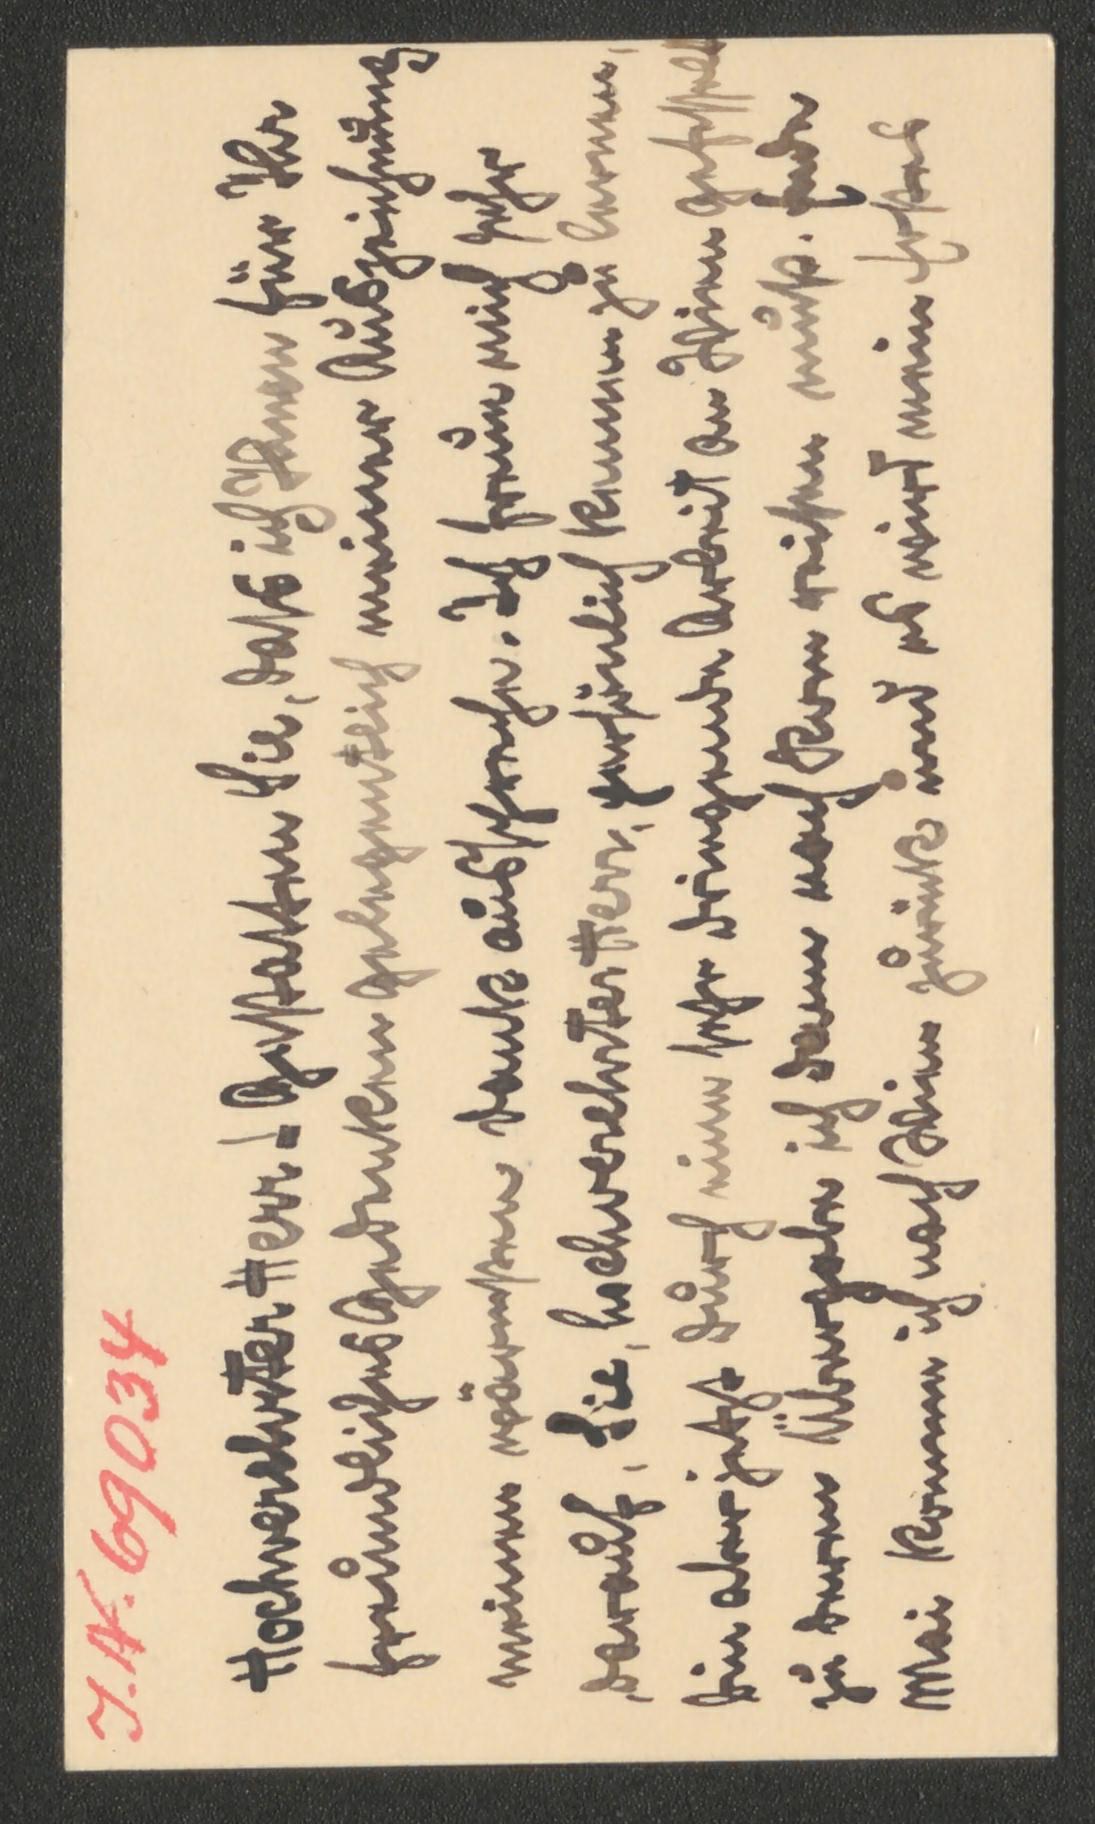 I.N. 69034
Hochverehrter Herr! Gestatten Sie, dass ich Ihnen für Ihr
freundliches Gedenken gelegentlich meiner Auszeichnung
meinen wärmsten Dank ausspreche. Ich freue mich sehr
darauf, Sie, hochverehrter Herr, persönlich kennen zu lernen,
bin aber jetzt durch eine sehr dringende Arbeit an Wien gefesselt
zu deren Übergabe ich dann nach Rom reisen muss. Ende
Mai komme ich nach Wien zurück und es wird mein